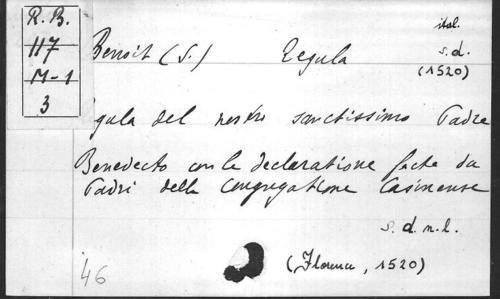 R. B.
117
M-1
3
Benoit (S.) Regula
ital.
s.d.
(1520)
gula del nostro sanctissimo Padre
Benedecto con le declaratione facte da
Padri della Congregatione Casinense
s. d. n. l.
(Florence, 1520)
46